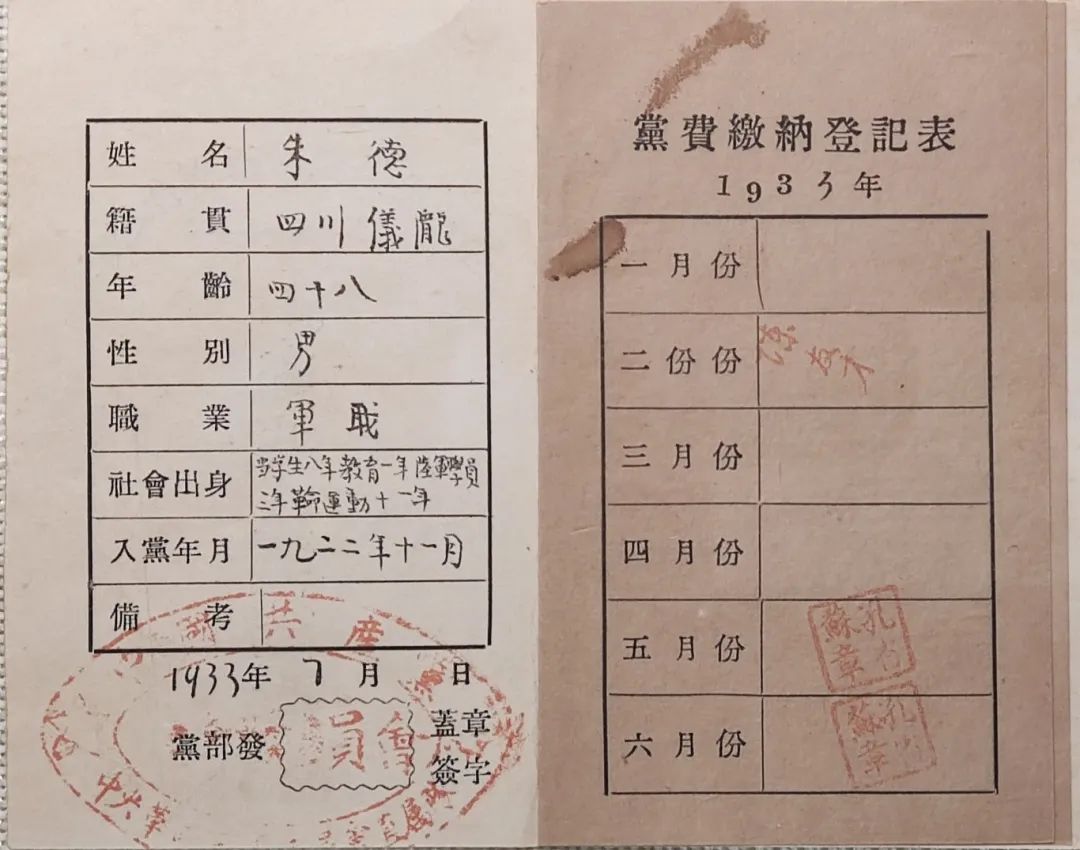 姓名 朱德
籍貫 四川儀隴
年齡 四十八
性別 男
職業 軍职
社會出身 当学生八年教育一年陸軍學員
三年革命運動十一年
入黨年月 一九二二年十一月
備考
1933年7月 日
黨部發 蓋章
簽字
共产
員會
中央革
黨費繳納登記表
193 年
一月份
二份份
三月份
四月份
五月份
孔石
蘇章
六月份
孔石
蘇章